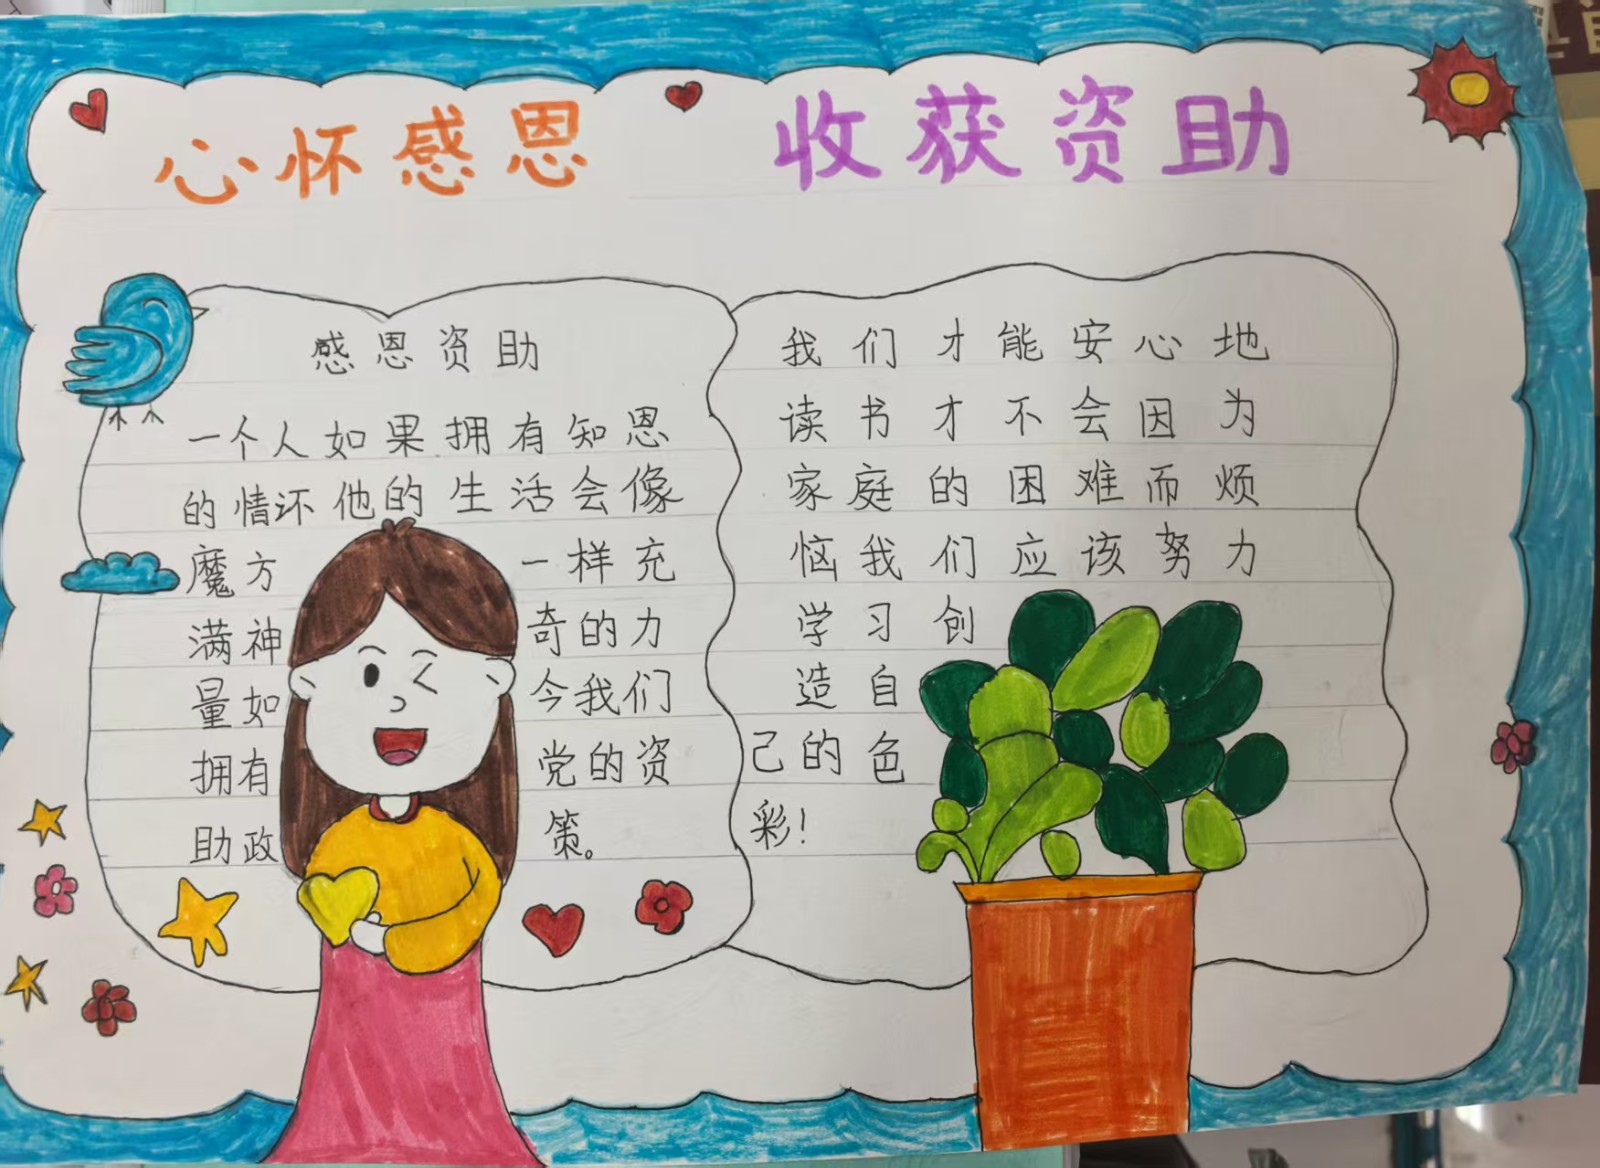 心怀感恩 收获资助
感恩资助
一个人如果拥有知恩
的情怀他的生活会像
魔方一样充
满神奇的力
量如今我们
拥有党的资
助政策。
我们才能安心地
读书才不会因为
家庭的困难而烦
恼我们应该努力
学习创
造自
己的色
彩!